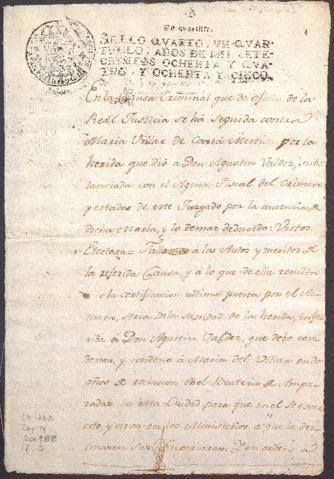 Vn quartillo.
SELLO QVARTO, VN QVAR-
TILLO, AÑOS DE MIL SETE-
CIENTOS OCHENTA Y QVA-
TRO, Y OCHENTA Y CINCO.
1
En la Causa Criminal que de oficio de la
Real Justicia se há seguido contra
Maria Villar de Casta Mestisa por la
herida que dió a Don Agustin Valdez, subs-
tanciada con el Agente Fiscal del Crimen
y estrados de este Juzgado por la ausencia de
dicha Maria, y lo demas deducido: Vistos
Etcetera = Fallamos á los Autos y meritos de
la referida Causa, y á lo que de ella
la certificacion ultima puesta por el
serca de la sanidad de la herida, infe
rida á Don Agustin Valdez, que debo con
denar, y condeno á Maria del Villar en dos
años de reclucion en el Beaterio de Ampa
radas de esta Ciudad para que en el
y sirva en los Ministerios a que la
Por orden a